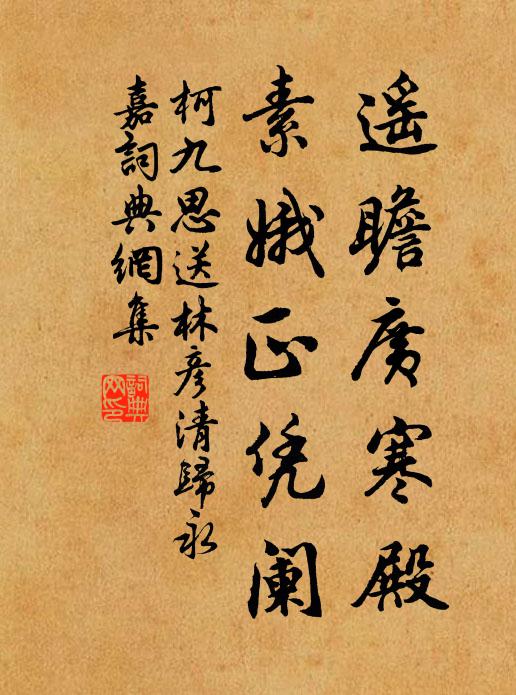 遥瞻廣寒殿
素娥正凭阑
柯九思送林彦清歸永
嘉詞典網集
詞典
网印